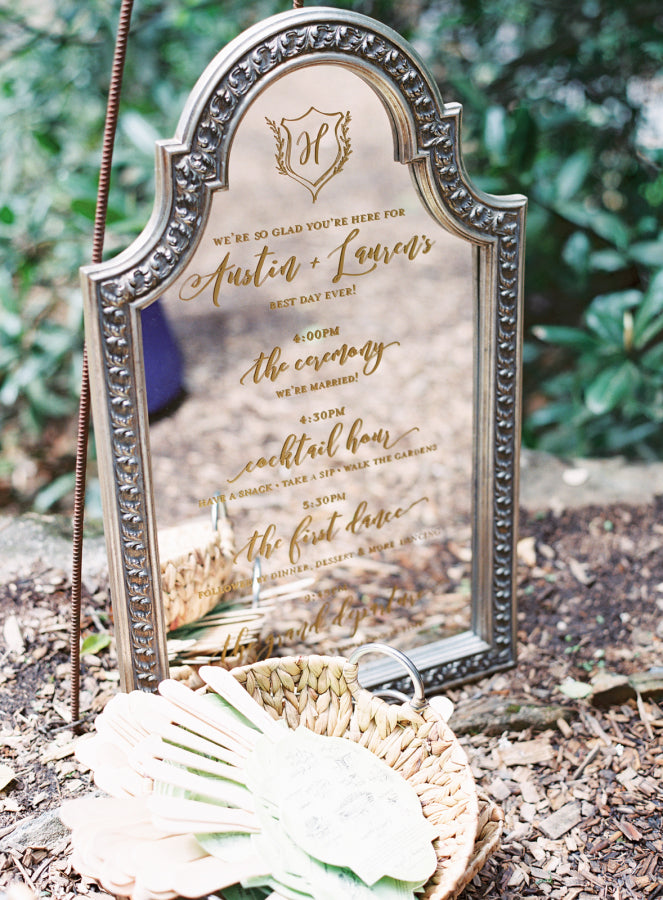 H
WE'RE SO GLAD YOU'RE HERE FOR
Austin + Lauren's
BEST DAY EVER!
4:00PM
the ceremony
WE'RE MARRIED!
4:30PM
cocktail hour
HAVE A SNACK • TAKE A SIP • WALK THE GARDENS
5:30PM
the first dance
FOLLOWED BY DINNER, DESSERT & MORE DANCING
the grand departure